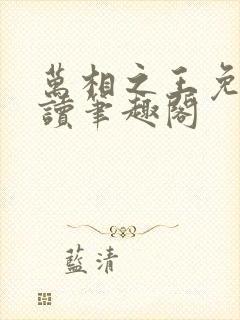 萬相之王免
讀筆趣閣
藍清